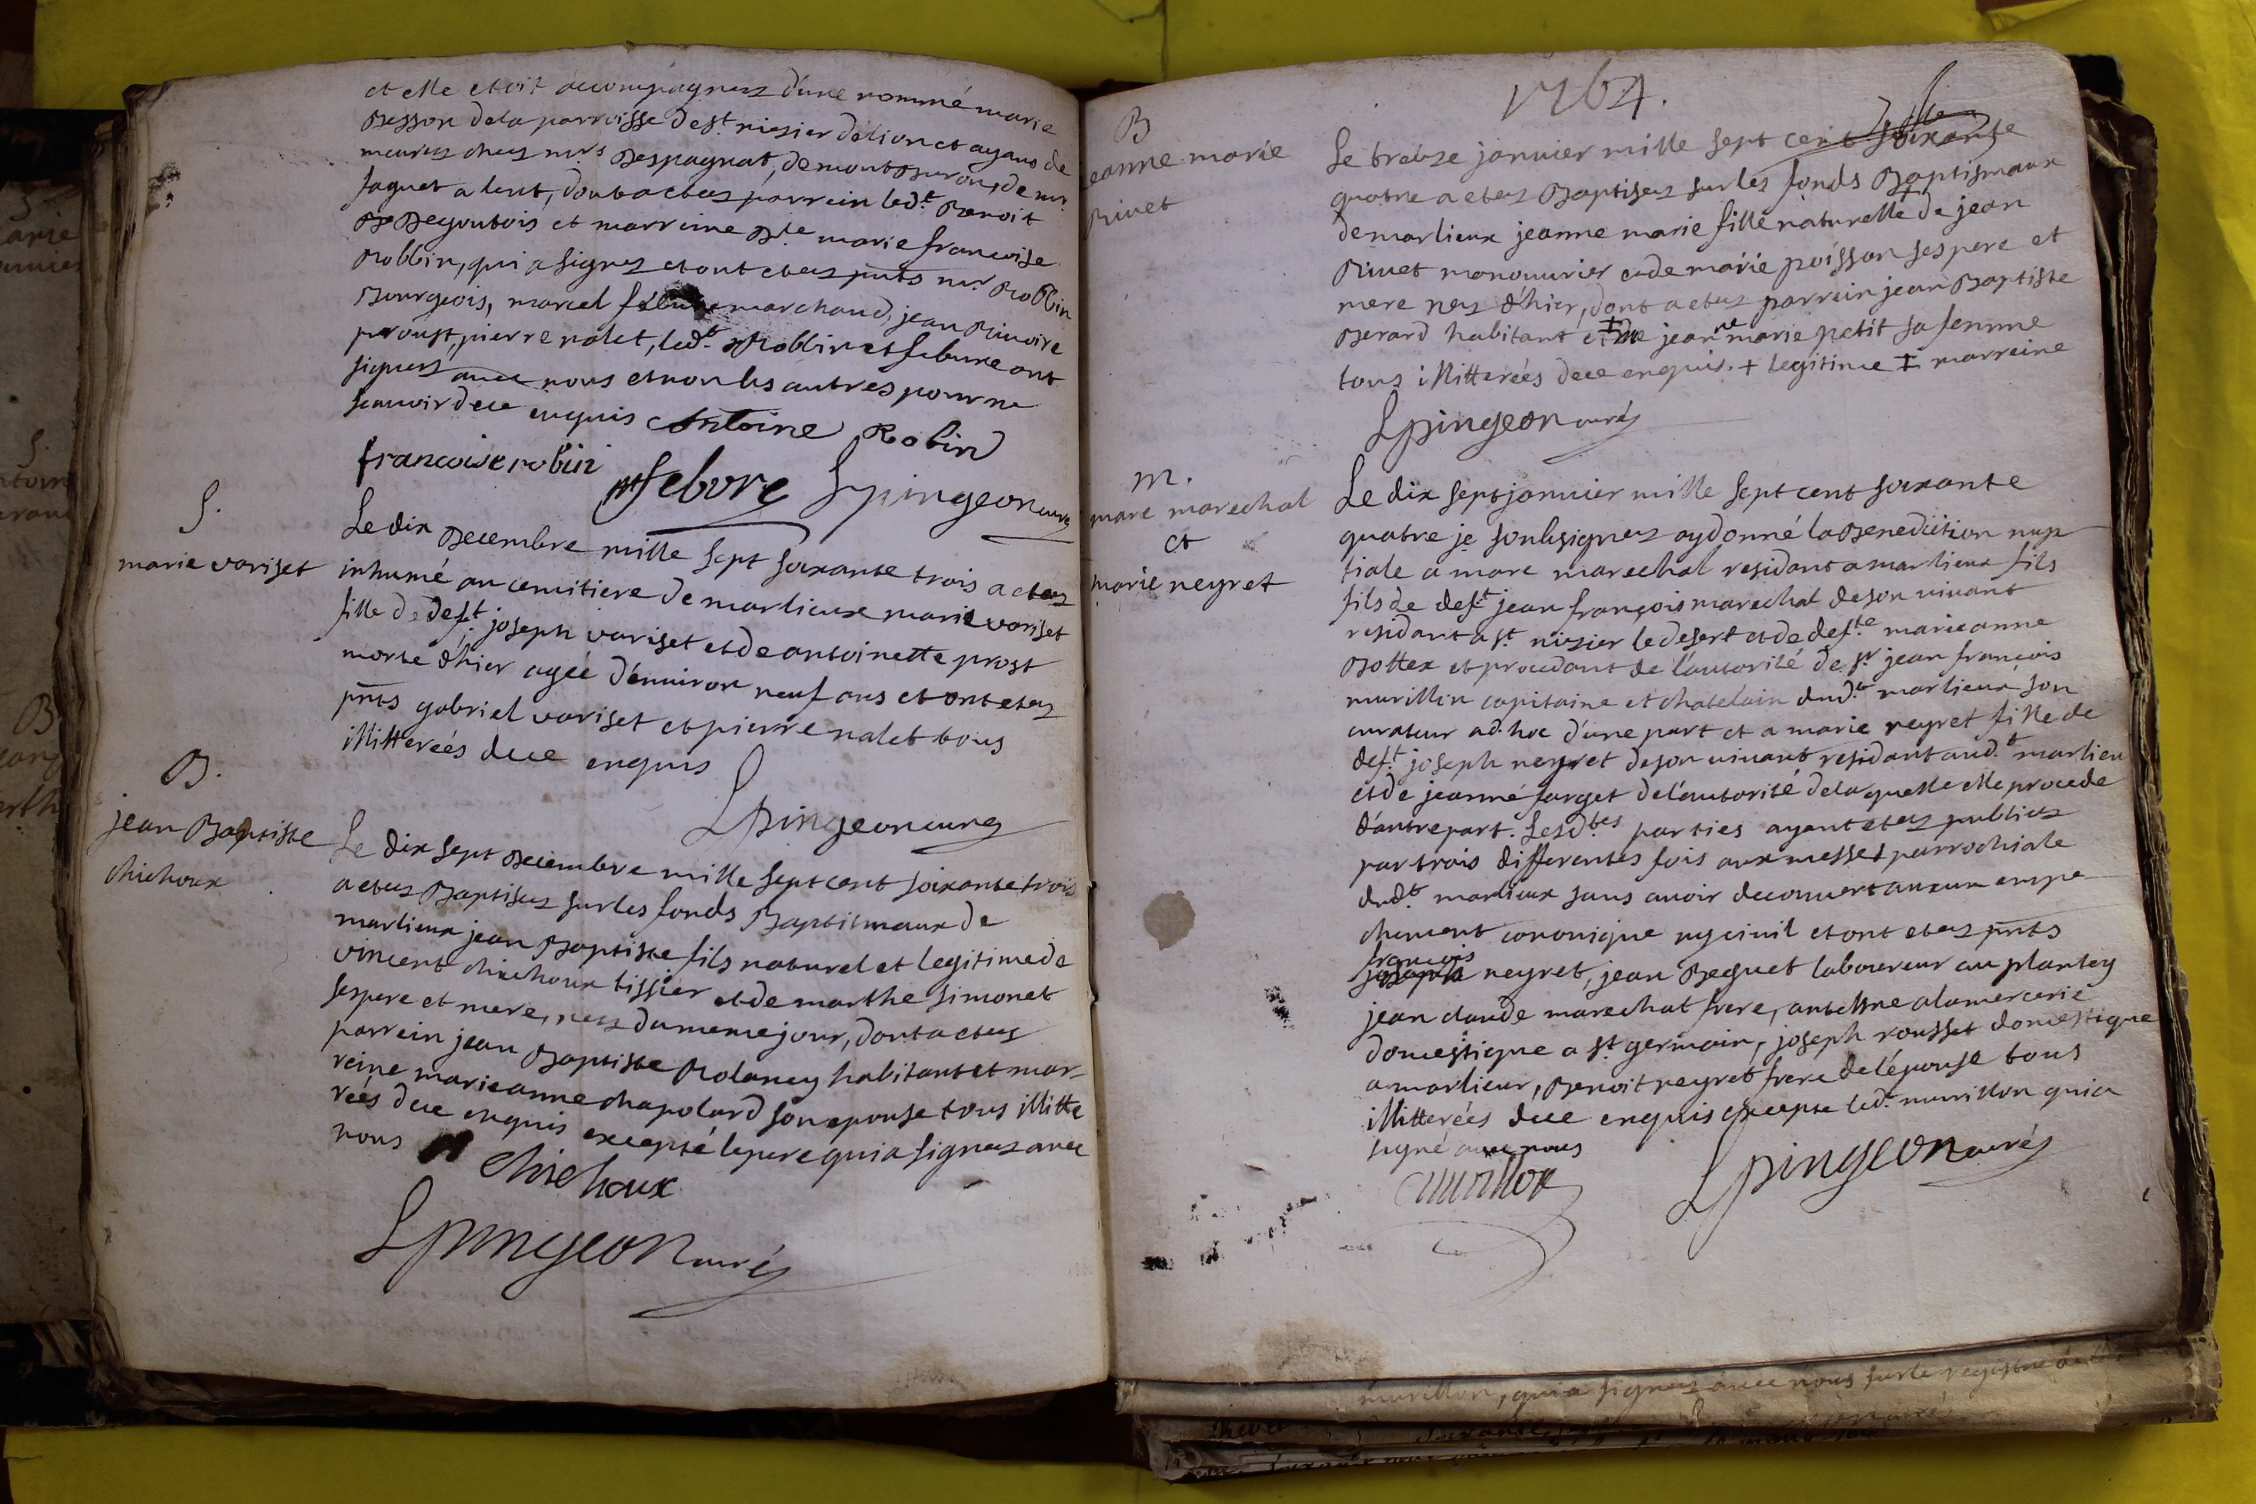 et elle etoit accompagnez d'une nommé marie
Besson de la parroisse de st nizier de lion et ayans de
meurez chez mrs Despagnat, de montburon, de mr
faguet a lent, dont a etez parrein led.t Benoit
Degoutois et marreine Dlle marie francoise
Robbin, qui a signez et ont etez pnts mr Robbin
Bourgeois, marcel febure marchand, jean Rivoire
proust, pierre nalet, led.t Robbin et febure ont
signez avec nous et non les autres pour ne
scauoir de ce enquis Antoine Robin
francoise robin
m febvre LPingeon curé
S.
marie variset
Le dix Decembre mille sept soixante trois a etez
inhumé au cemitiere de marlieux marie variset
fille de deft joseph variset et de antoinette prost
morte d'hier agée d'enuiron neuf ans et ont etez
pnts gabriel variset et pierre nalet tous
illitterées de ce enquis
LPingeon curé
B.
jean Baptiste
chichoux
Le dix sept Decembre mille sept cent soixante trois
a etez Baptisez sur les fonds Baptismaux de
marlieux jean Baptiste fils naturel et legitime de
vincent chichoux tissier et de marthe simonet
ses pere et mere, nez du meme jour, dont a etez
parrein jean Baptiste Rolancy habitant et mar-
reine marie anne chapolard son epouse tous illitte
rées de ce enquis excepté le pere qui a signez avec
nous
chichoux
LPingeon curé
1764.
B
jeanne marie
Rivet
Le treize januier mille sept cent soixante
quatre a etez Baptisez sur les fonds Baptismaux
de marlieux jeanne marie fille naturelle + de jean
Rivet manouurier et de marie poisson ses pere et
mere nez d'hier, dont a etez parrein jean Baptiste
Berard habitant et ‡ jeanne marie petit sa femme
tous illitterées de ce enquis. + legitime ‡ marreine
LPingeon curé
m.
marc marechal
et
marie neyret
Le dix sept januier mille sept cent soixante
quatre je soubsignez ay donné la Benediction nup
tiale a marc marechal residant a marlieux fils
fils de deft jean françois marechal de son uiuant
residant a st nizier le desert et de defte marie anne
Bottex et procedant de l'autorité de sr jean françois
murillon capitaine et chatelain dud.t marlieux son
curateur ad hoc d'une part et a marie neyret fille de
deft joseph neyret de son uiuant residant aud.t marlieu
et de jeanne farget de l'autorité de laquelle elle procede
d'autre part. Lesd.tes parties ayant etez publiez
par trois differentes fois aux messes parrochiale
dud.t marlieux sans auoir decouuert aucun empe
chement cononique ny ciuil et ont etez pnts
françois
joseph neyret, jean Beguet laboureur au plantey
jean claude marechal frere, antelme alamercerie
domestique a st germain, joseph rousset domestique
a marlieux, Benoit neyret frere de l'épouse tous
illitterées de ce enquis excepté led.t murillon qui a
signé auec nous
Murillon
LPingeon curé
murillon, qui a signez auec nous sur le registre